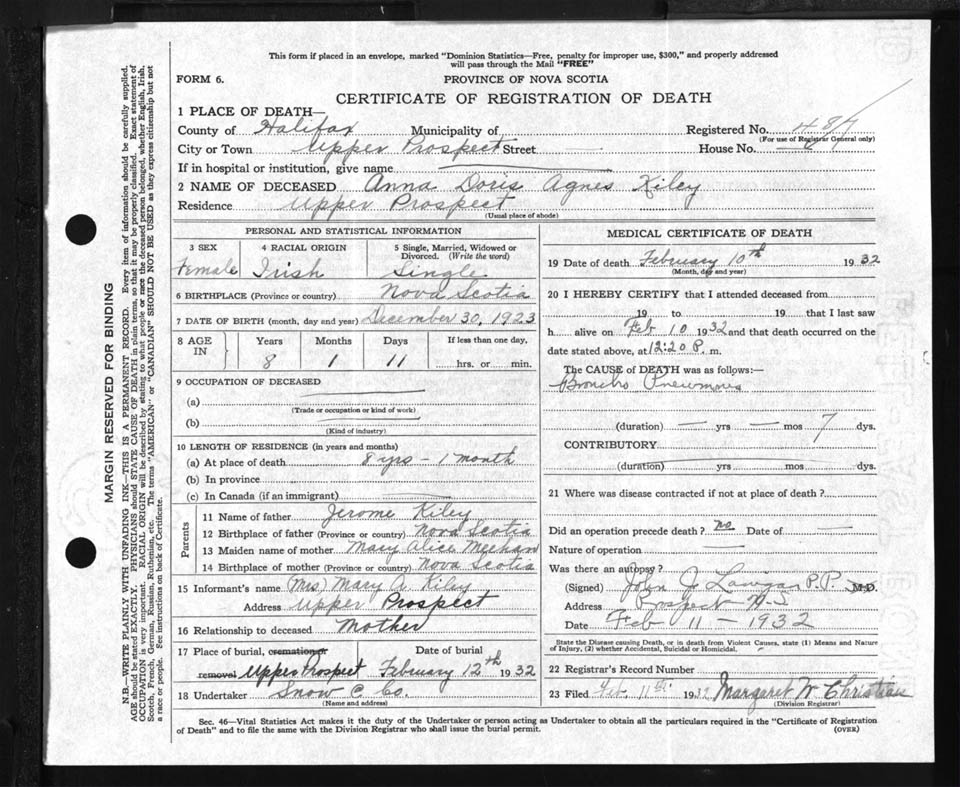 This form if placed in an envelope, marked "Dominion Statistics—Free, penalty for improper use, $300," and properly addressed
will pass through the Mail "FREE"
FORM 6.
PROVINCE OF NOVA SCOTIA
CERTIFICATE OF REGISTRATION OF DEATH
1 PLACE OF DEATH—
County of Halifax Municipality of Registered No. 487
(For use of Registrar General only)
City or Town Upper Prospect Street — House No. —
If in hospital or institution, give name
2 NAME OF DECEASED Anna Doris Agnes Kiley
Residence Upper Prospect
(Usual place of abode)
PERSONAL AND STATISTICAL INFORMATION
3 SEX 4 RACIAL ORIGIN 5 Single, Married, Widowed or Divorced. (Write the word)
Female Irish Single
6 BIRTHPLACE (Province or country) Nova Scotia
7 DATE OF BIRTH (month, day and year) December 30, 1923
8 AGE IN Years Months Days If less than one day,
8 1 11 hrs. or min.
9 OCCUPATION OF DECEASED
(a)
(Trade or occupation or kind of work)
(b)
(Kind of industry)
10 LENGTH OF RESIDENCE (in years and months)
(a) At place of death 8 yrs - 1 month
(b) In province
(c) In Canada (if an immigrant)
Parents
11 Name of father Jerome Kiley
12 Birthplace of father (Province or country) Nova Scotia
13 Maiden name of mother Mary Alice Meehan
14 Birthplace of mother (Province or country) Nova Scotia
15 Informant's name (Mrs) Mary A. Kiley
Address Upper Prospect
16 Relationship to deceased Mother
17 Place of burial, cremation or Date of burial
removal Upper Prospect February 12th 1932
18 Undertaker Snow & Co.
(Name and address)
MEDICAL CERTIFICATE OF DEATH
19 Date of death February 10th 1932
(Month, day and year)
20 I HEREBY CERTIFY that I attended deceased from
19 to 19 that I last saw
h alive on Feb 10 1932 and that death occurred on
date stated above, at 12:20 P. m.
The CAUSE of DEATH was as follows:—
Broncho Pneumonia
(duration) — yrs — mos 7 dys.
CONTRIBUTORY
(duration) yrs mos dys.
21 Where was disease contracted if not at place of death?
Did an operation precede death? no Date of —
Nature of operation —
Was there an autopsy?
(Signed) John J. P.P. M.D.
Address Prospect N.S.
Date Feb 11 - 1932
State the Disease causing Death, or in death from Violent Causes, state (1) Means and Nature
of Injury, (2) whether Accidental, Suicidal or Homicidal.
22 Registrar's Record Number
23 Filed Feb. 11th 1932 Margaret W Christian
(Division Registrar)
Sec. 46—Vital Statistics Act makes it the duty of the Undertaker or person acting as Undertaker to obtain all the particulars required in the "Certificate of Registration
of Death" and to file the same with the Division Registrar who shall issue the burial permit. (OVER)
MARGIN RESERVED FOR BINDING
N.B.—WRITE PLAINLY WITH UNFADING INK—THIS IS A PERMANENT RECORD. Every item of information should be carefully supplied.
AGE should be stated EXACTLY. PHYSICIANS should STATE CAUSE OF DEATH in plain terms, so that it may be properly classified. Exact statement of
OCCUPATION is very important. RACIAL ORIGIN will be described by stating to what people or race the deceased person belonged, whether English, Irish,
Scotch, French, German, Russian, Ruthenian, etc. The terms "AMERICAN" or "CANADIAN" SHOULD NOT BE USED as they express citizenship but not
a race or people. See instructions on back of Certificate.